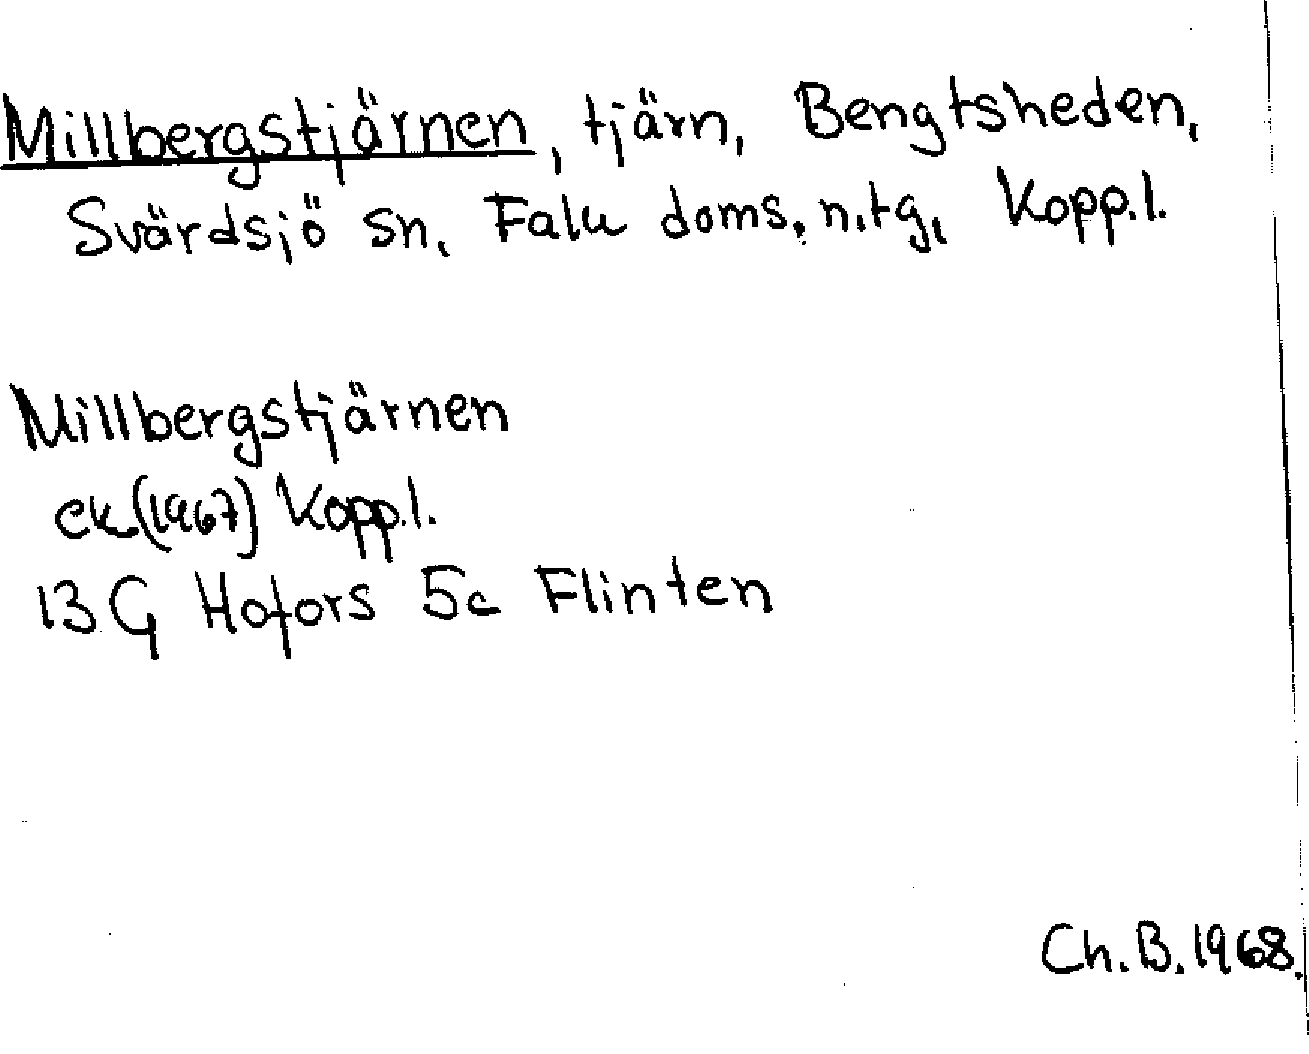 Millbergstjärnen, tjärn, Bengtsheden,
Svärdsjö sn, Falu doms. n. tg, Kopp.l.
Millbergstjärnen
ek (1967) Kopp.l.
13 G Hofors 5c Flinten
Ch. B. 1968.